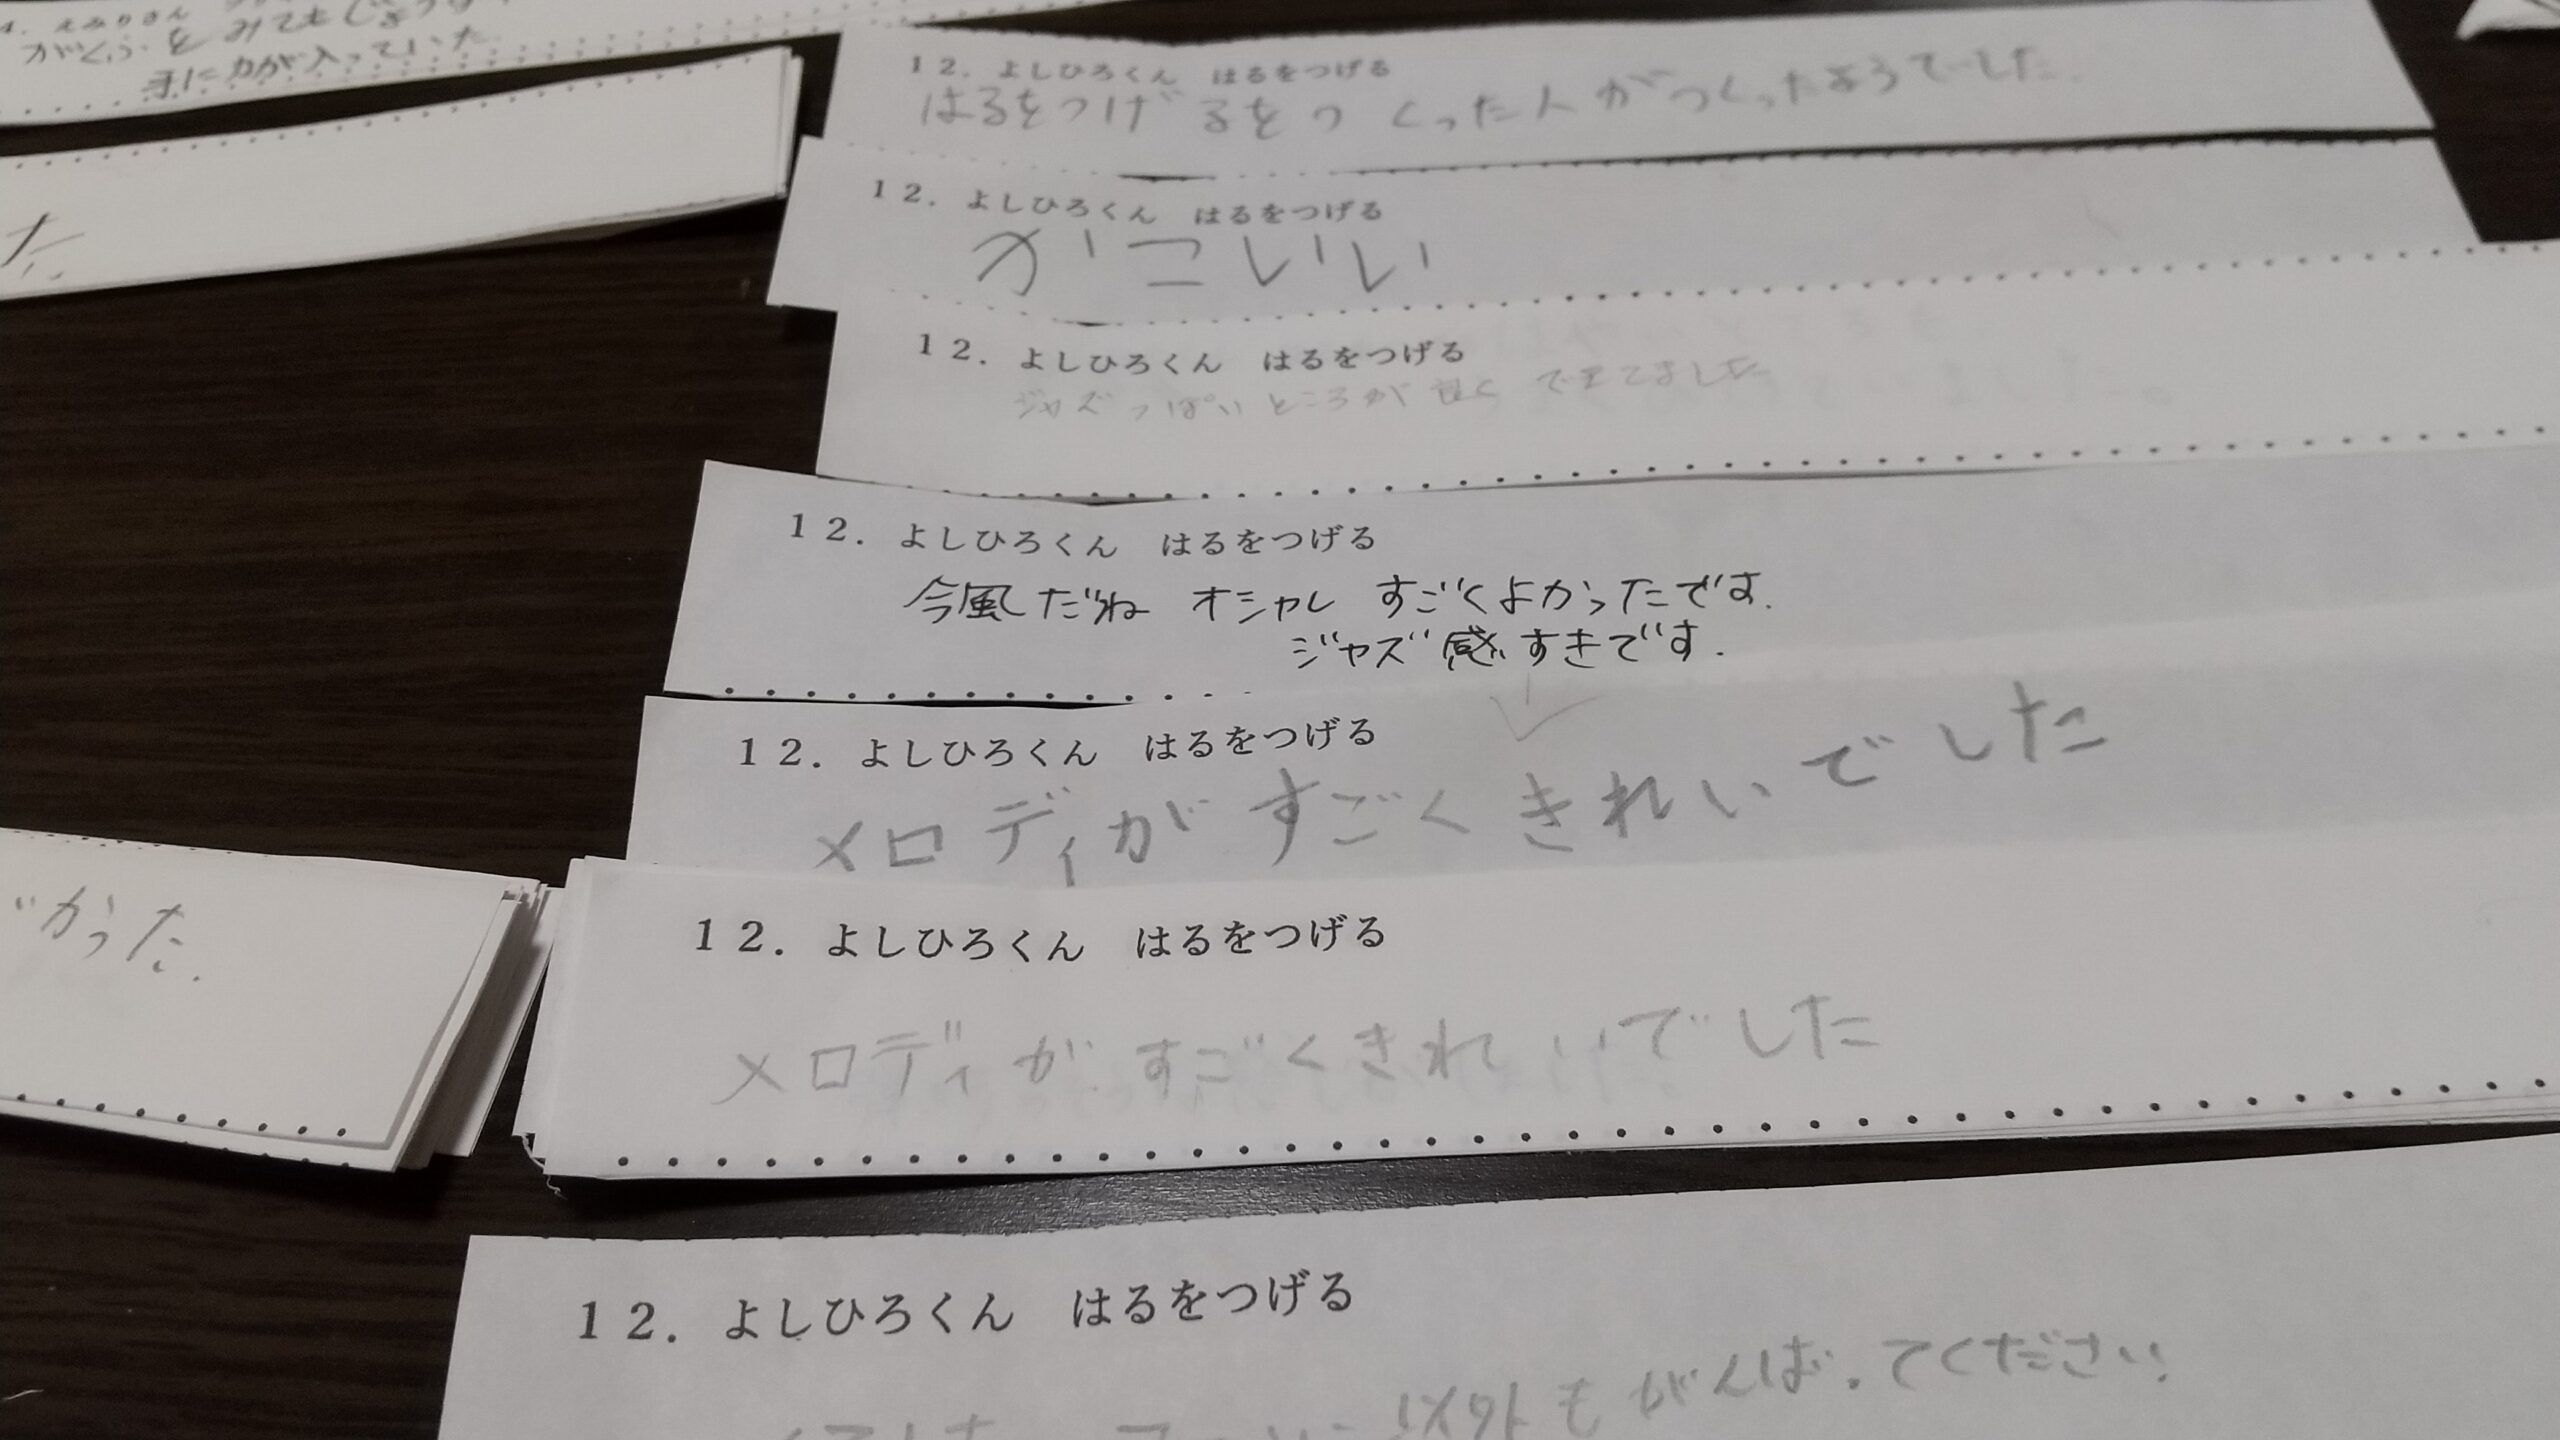 がくふをみても
手に力が入っていた
た
12. よしひろくん はるをつげる
はるをつげるをつくった人がつくったようでした.
12. よしひろくん はるをつげる
がこいい
12. よしひろくん はるをつげる
ジャズっぽいところが良くできてました
12. よしひろくん はるをつげる
今風だね オシャレ すごくよかったです.
ジャズ感すきです.
12. よしひろくん はるをつげる
メロディがすごくきれいでした
かった.
12. よしひろくん はるをつげる
メロディがすごくきれいでした
12. よしひろくん はるをつげる
以外もがんばってください